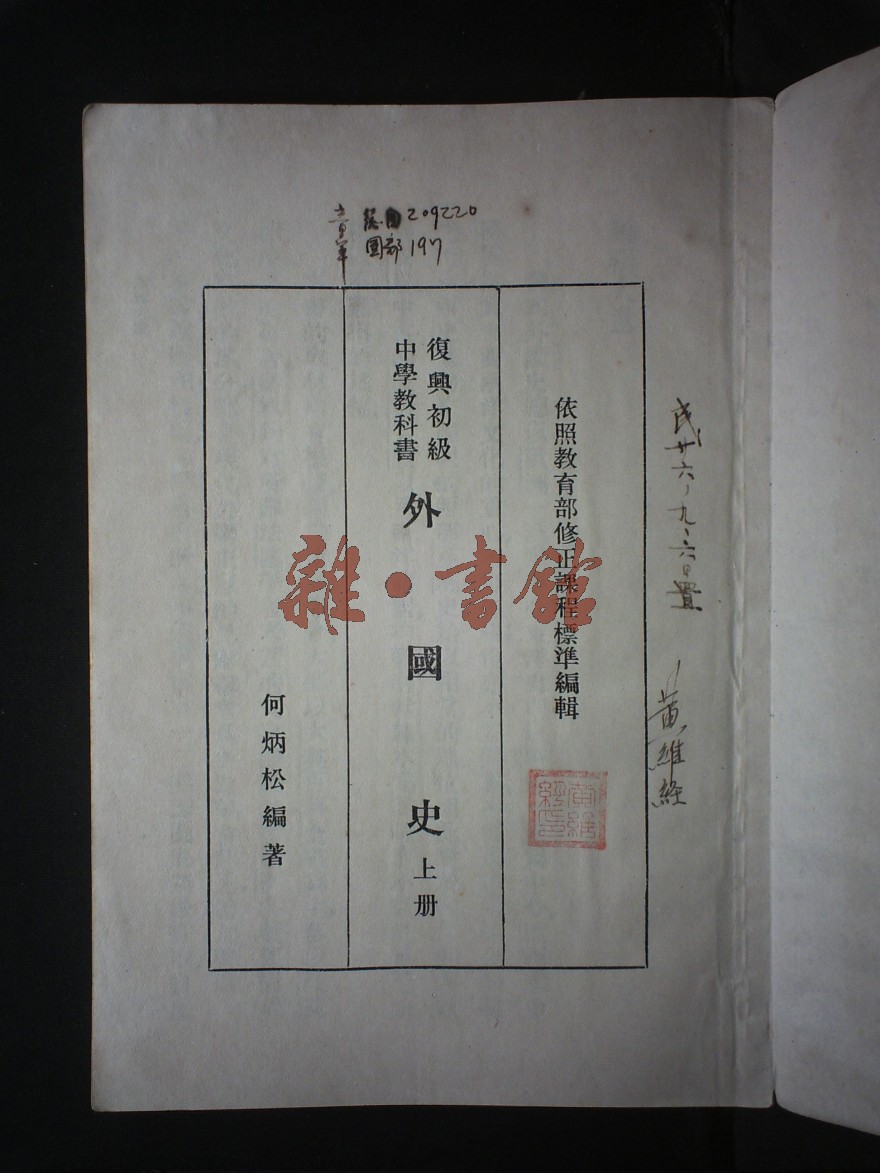 209220
圖部 197
依照教育部修正課程標準編輯
復興初級
中學教科書
外國史上册
何炳松編著
民廿六、九、六日置
黃維經
雜·書館